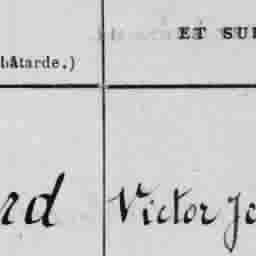 ET SU
bâtarde.)
rd Victor Jo